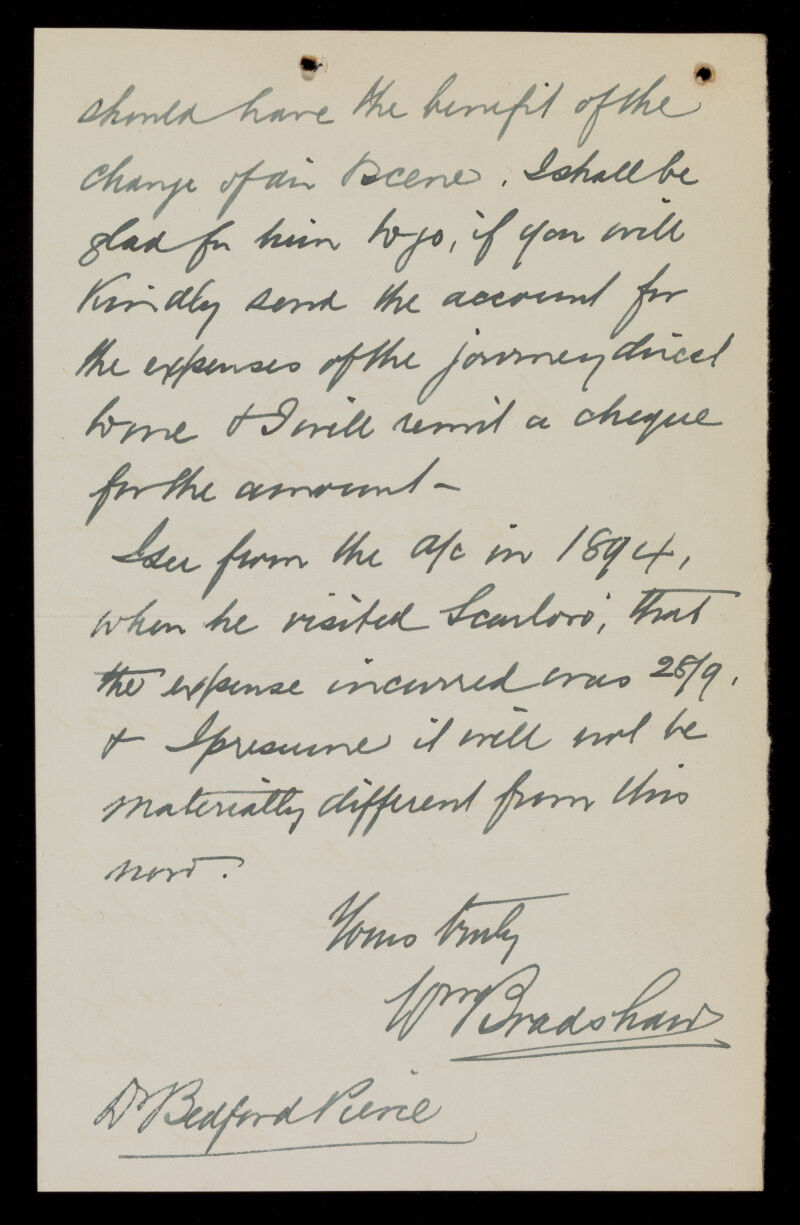 should have the benefit of the
change of air & scene. I shall be
glad for him to go, if you will
kindly send the account for
the expenses of the journey direct
to me & I will remit a cheque
for the amount —
I see from the a/c in 1894,
when he visited Scarboro', that
the expense incurred was 28/9,
& I presume it will not be
materially different from this
now.
Yours truly
Wm Bradshaw
Dr Bedford Pierce